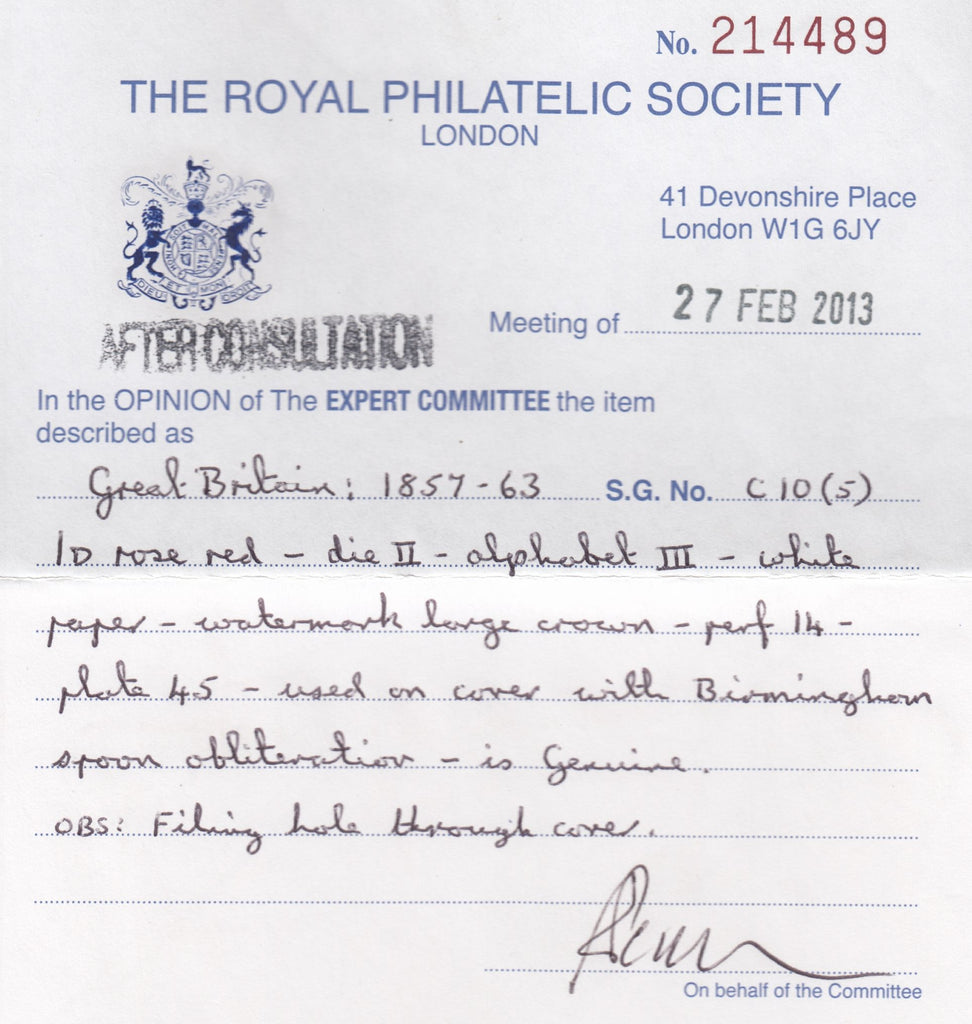 No. 214489
THE ROYAL PHILATELIC SOCIETY
LONDON
41 Devonshire Place
London W1G 6JY
DIEU ET MON DROIT
AFTER CONSULTATION
Meeting of 27 FEB 2013
In the OPINION of The EXPERT COMMITTEE the item
described as
Great Britain: 1857-63 S.G. No. C10(5)
1D rose red - die II - alphabet III - white
paper - watermark large crown - perf 14 -
plate 45 - used on cover with Birmingham
spoon obliteration - is Genuine.
OBS: Filing hole through cover.
On behalf of the Committee